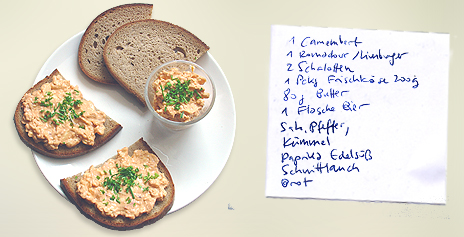 1 Camembert
1 Romadour/Limburger
2 Schalotten
1 Pckg Frischkäse 200g
80g Butter
1 Flasche Bier
Salz, Pfeffer,
Kümmel
Paprika Edelsüß
Schnittlauch
Brot